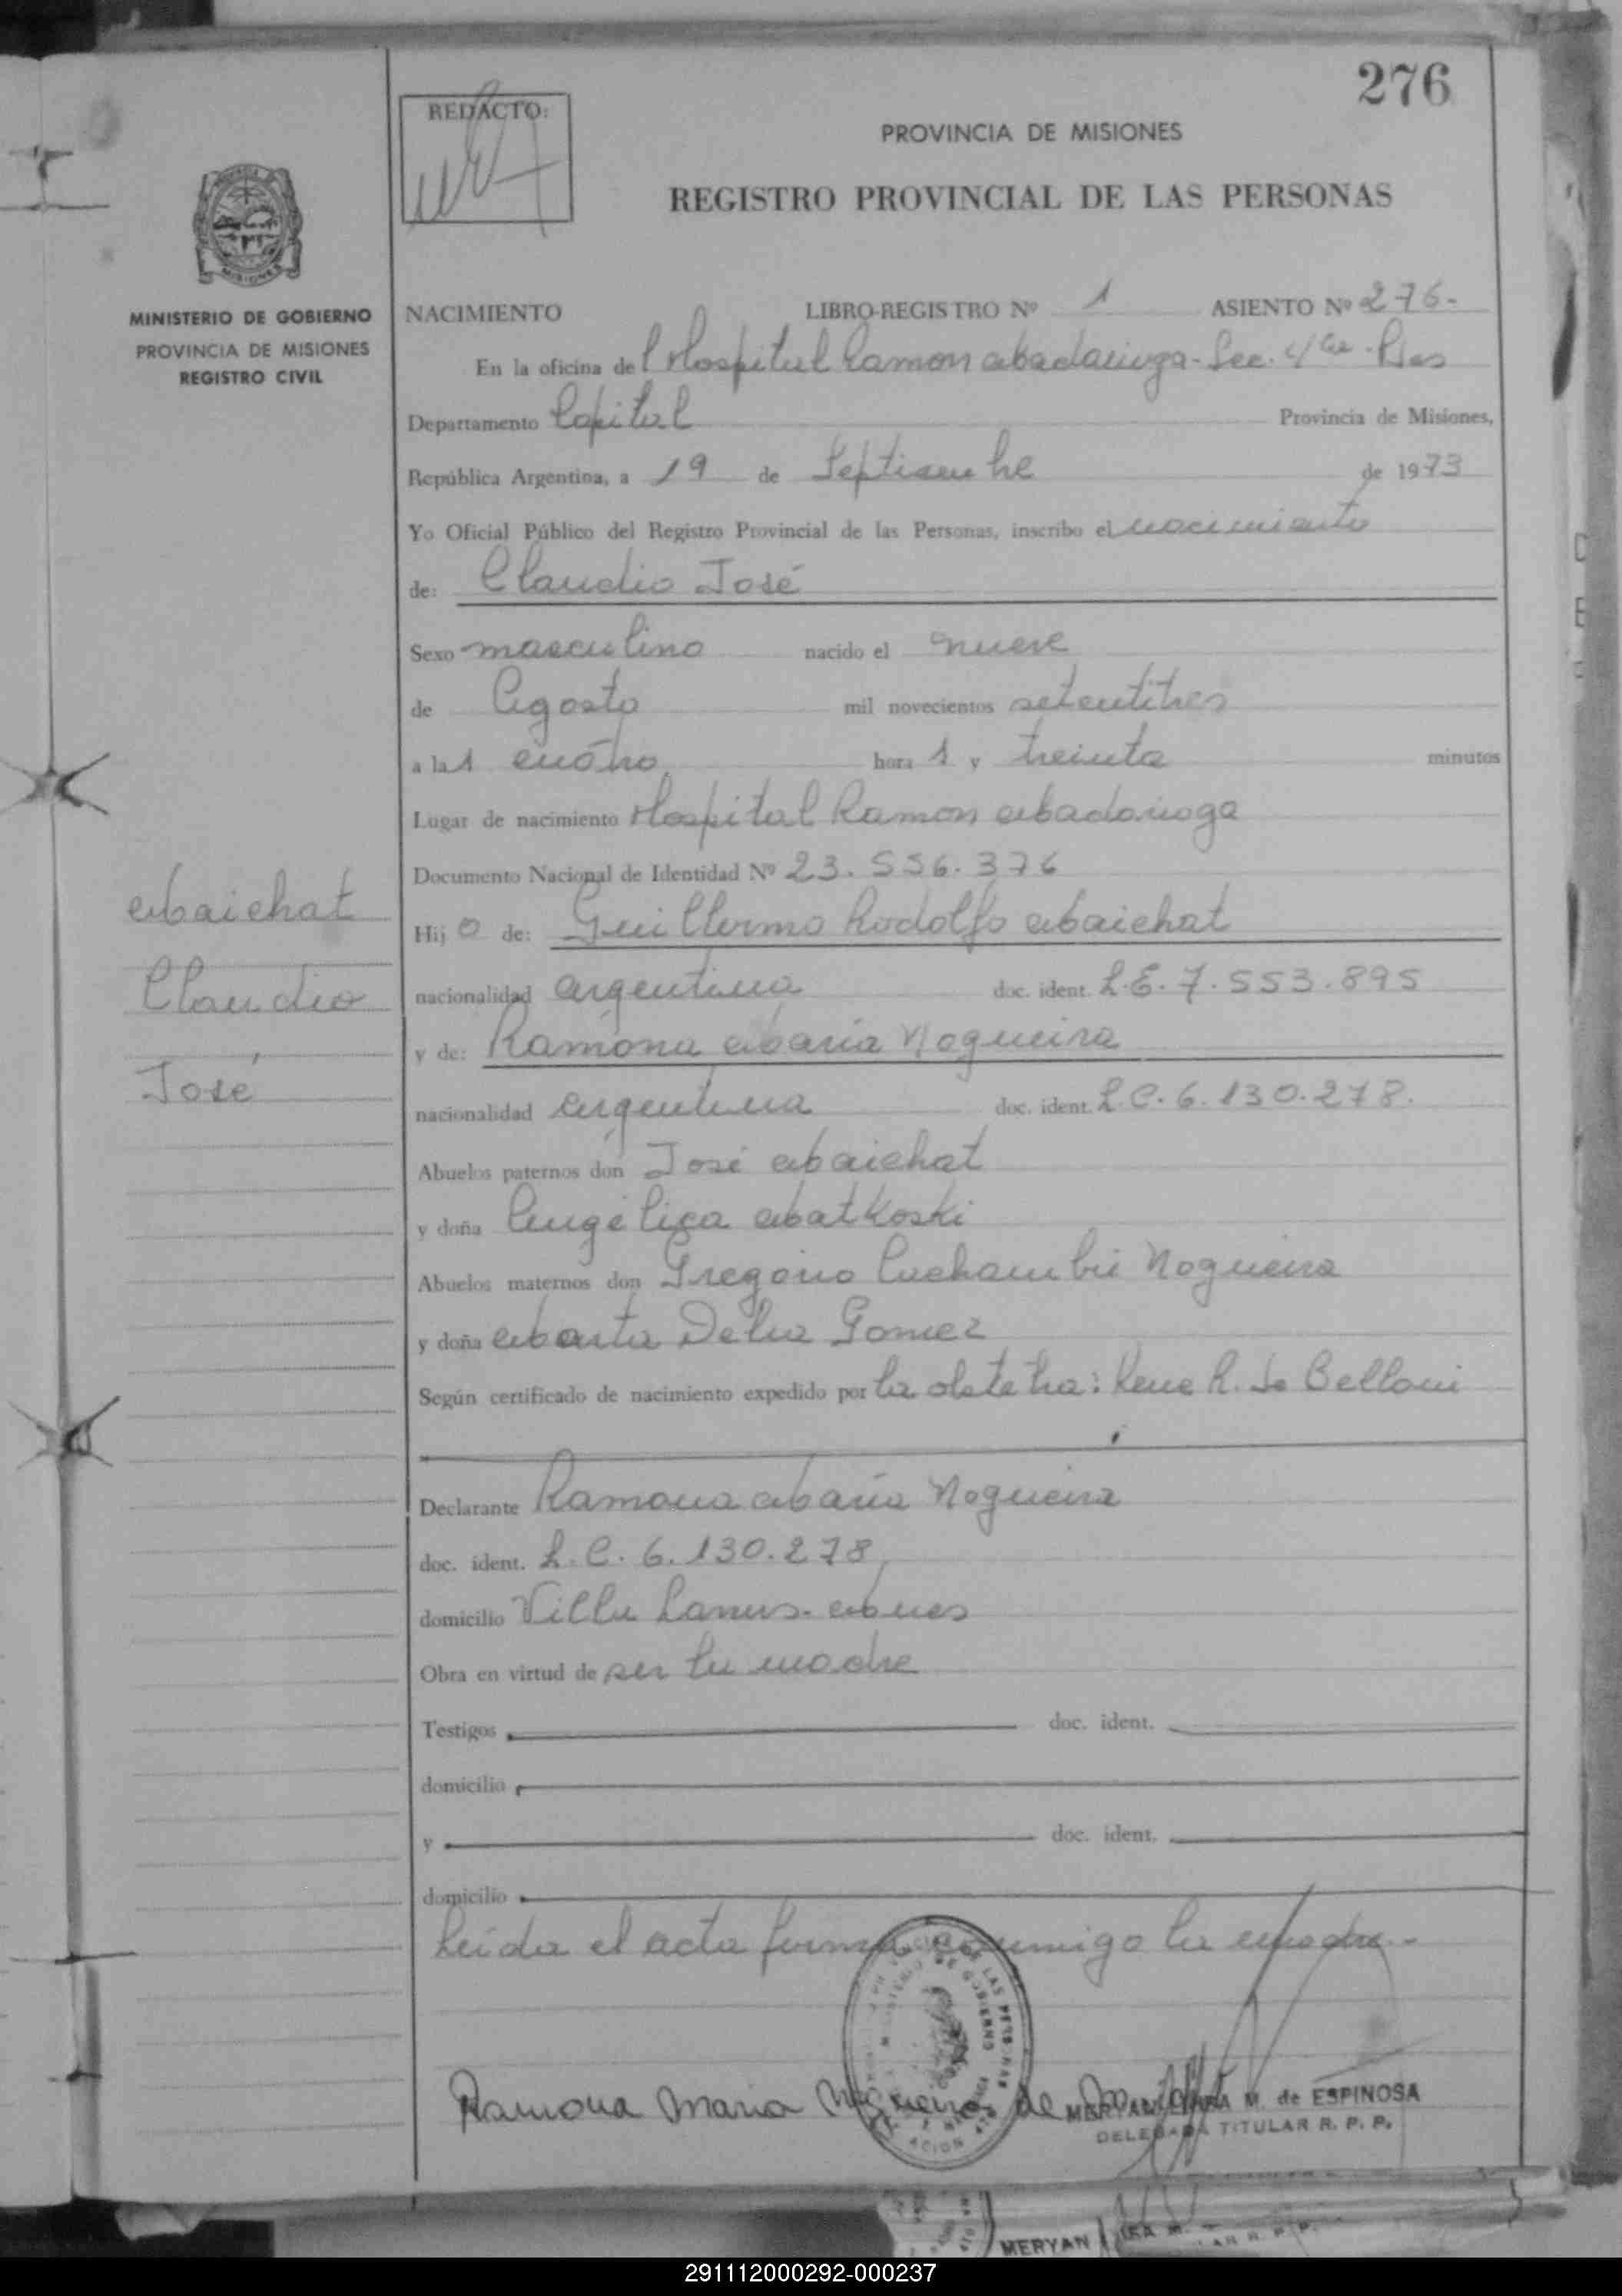 276
REDACTO:
PROVINCIA DE MISIONES
REGISTRO PROVINCIAL DE LAS PERSONAS
MINISTERIO DE GOBIERNO
PROVINCIA DE MISIONES
REGISTRO CIVIL
NACIMIENTO LIBRO-REGISTRO Nº 1 ASIENTO Nº 276-
En la oficina del Hospital Ramon Madariaga - Sec. 4ta - Pdas
Departamento Capital Provincia de Misiones,
República Argentina, a 19 de Septiembre de 1973
Yo Oficial Público del Registro Provincial de las Personas, inscribo el nacimiento
de: Claudio José
Sexo masculino nacido el nueve
de Agosto mil novecientos setentitres
a las cuatro hora s y treinta minutos
Lugar de nacimiento Hospital Ramon Madariaga
Documento Nacional de Identidad Nº 23.556.376
Maichat
Claudio
José
Hij o de: Guillermo Rodolfo Maichat
nacionalidad argentina doc. ident. L.E. 7.553.895
y de: Ramona Maria Nogueira
nacionalidad argentina doc. ident. L.C. 6.130.278.
Abuelos paternos don José Maichat
y doña Angélica Matkoski
Abuelos maternos don Gregorio Nogueira
y doña Marta Delia Gomez
Según certificado de nacimiento expedido por la obstetra: Rene R. de Belloni
Declarante Ramona Maria Nogueira
doc. ident. L.C. 6.130.278
domicilio Villa Lanus - Mnes
Obra en virtud de ser la madre
Testigos doc. ident.
domicilio
y doc. ident.
domicilio
Leida el acta firma conmigo la madre.-
Ramona Maria Nogueira de Maichat
M. de ESPINOSA
DELEGADA TITULAR R. P. P.
MERYAN
291112000292-000237